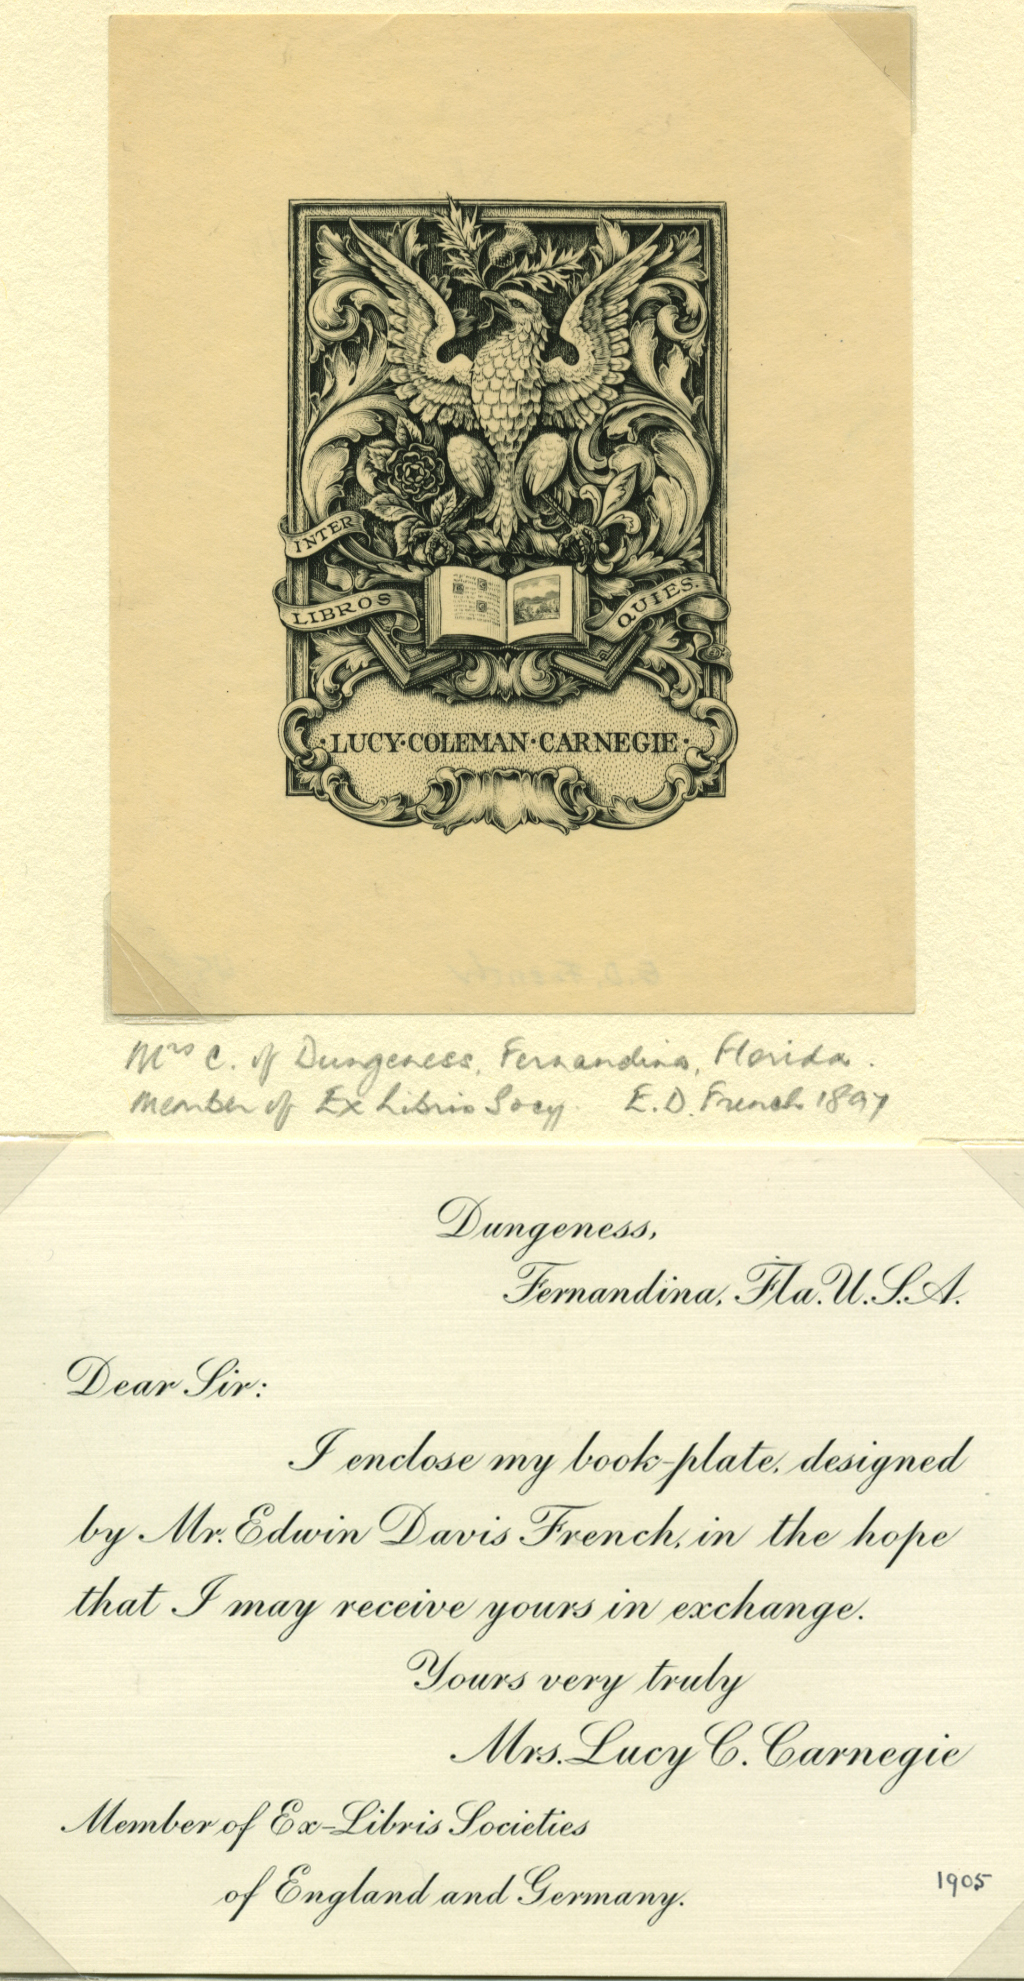 INTER
LIBROS
QUIES.
·LUCY·COLEMAN·CARNEGIE·
Mrs C. of Dungeness, Fernandina, Florida.
Member of Ex Libris Socy. E. D. French 1897
Dungeness,
Fernandina, Fla. U.S.A.
Dear Sir:
I enclose my book-plate, designed
by Mr. Edwin Davis French, in the hope
that I may receive yours in exchange.
Yours very truly
Mrs. Lucy C. Carnegie
Member of Ex-Libris Societies
of England and Germany.
1905